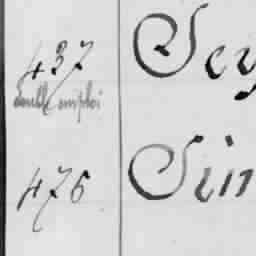 437 Scy
double emploi
476 Sin